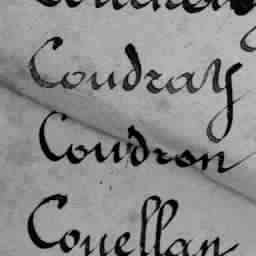 Coudray
Coudron
Couellan